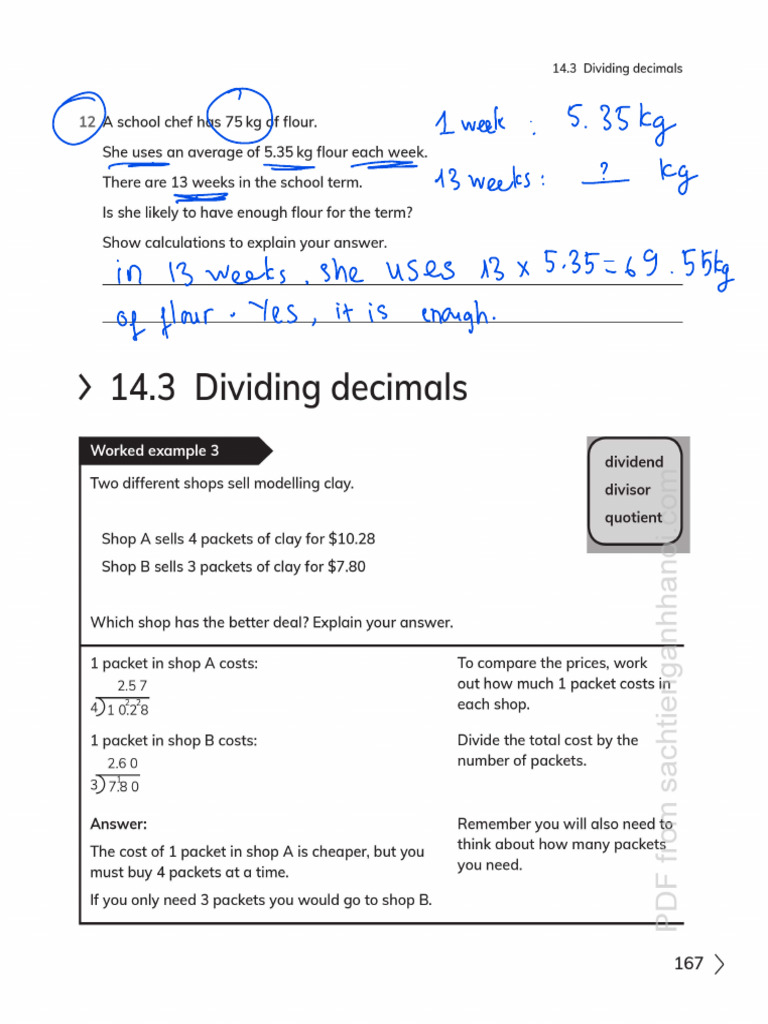 14.3 Dividing decimals
12 A school chef has 75 kg of flour.
1 week : 5.35 kg
She uses an average of 5.35 kg flour each week.
There are 13 weeks in the school term.
13 weeks : ? kg
Is she likely to have enough flour for the term?
Show calculations to explain your answer.
in 13 weeks, she uses 13 x 5.35 = 69.55kg
of flour. Yes, it is enough.
> 14.3 Dividing decimals
Worked example 3
dividend
divisor
quotient
Two different shops sell modelling clay.
Shop A sells 4 packets of clay for $10.28
Shop B sells 3 packets of clay for $7.80
Which shop has the better deal? Explain your answer.
1 packet in shop A costs:
2.5 7
4)1 0.²2 ²8
To compare the prices, work
out how much 1 packet costs in
each shop.
1 packet in shop B costs:
2.6 0
3)7.¹8 0
Divide the total cost by the
number of packets.
Answer:
The cost of 1 packet in shop A is cheaper, but you
must buy 4 packets at a time.
If you only need 3 packets you would go to shop B.
Remember you will also need to
think about how many packets
you need.
PDF from sachtienganhhanoi.com
167 >